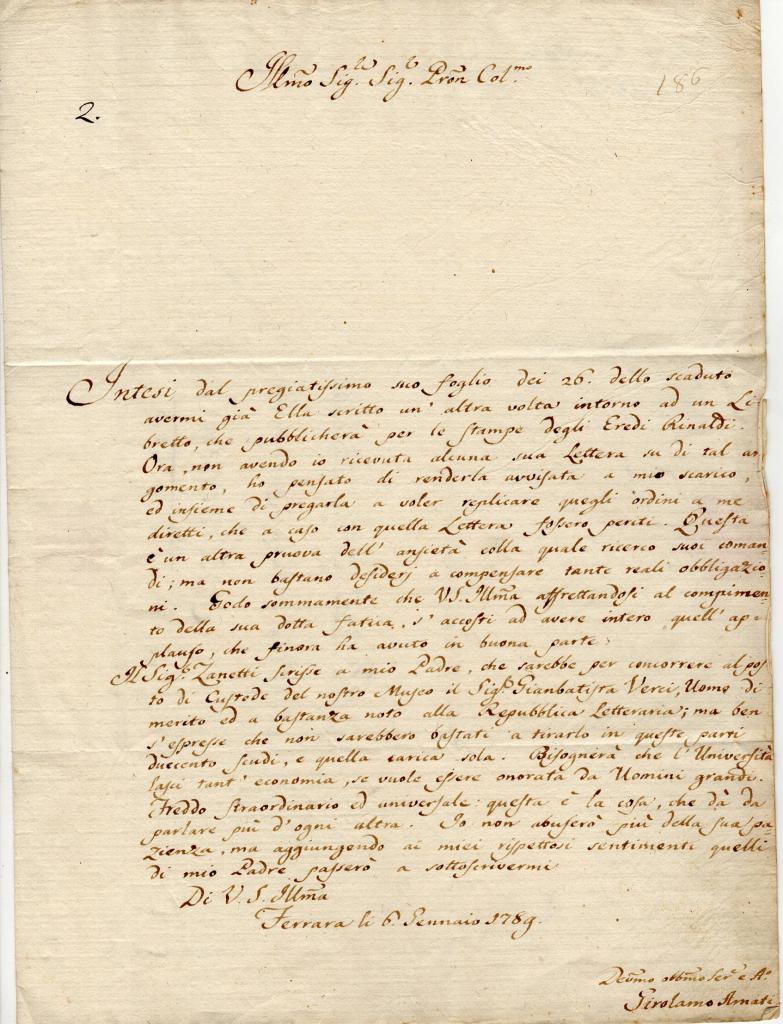 Illmo Sig.re Sig.r Pron Col.mo
186
2.
Intesi dal pregiatissimo suo foglio dei 26. dello scaduto
avermi già Ella scritto un' altra volta intorno ad un Li-
bretto, che pubblicherà per le stampe degli Eredi Rinaldi.
Ora, non avendo io ricevuta alcuna sua Lettera su di tal ar
gomento, ho pensato di renderla avvisata a mio scarico,
ed insieme di pregarla a voler replicare quegli ordini a me
diretti, che a caso con quella Lettera fossero periti. Questa
è un altra pruova dell' ansietà colla quale ricerco suoi coman=
di; ma non bastano desiderj a compensare tante reali obbligazio=
ni. Godo sommamente che V.S. Illma affrettandosi al compimen=
to della sua dotta fatica, s' accosti ad avere intero quell' ap=
plauso, che finora ha avuto in buona parte.
Il Sig.r Zanetti scrisse a mio Padre, che sarebbe per concorrere al pos
to di Custode del nostro Museo il Sig.r Gianbatista Verci, Uomo di
merito ed a bastanza noto alla Repubblica Letteraria; ma ben
s' espresse che non sarebbero bastati a tirarlo in queste parti
duecento scudi, e quella carica sola. Bisognerà che l' Università
lasci tant' economia, se vuole essere onorata da Uomini grandi.
Freddo straordinario ed universale: questa è la cosa, che dà da
parlare più d' ogni altra. Io non abuserò più della sua pa
zienza, ma aggiungendo ai miei rispettosi sentimenti quelli
di mio Padre passerò a sottoscrivermi
Di V. S. Illma
Ferrara li 6. Gennaio 1789.
Devmo obbmo Serv.e e A.o
Girolamo Amati